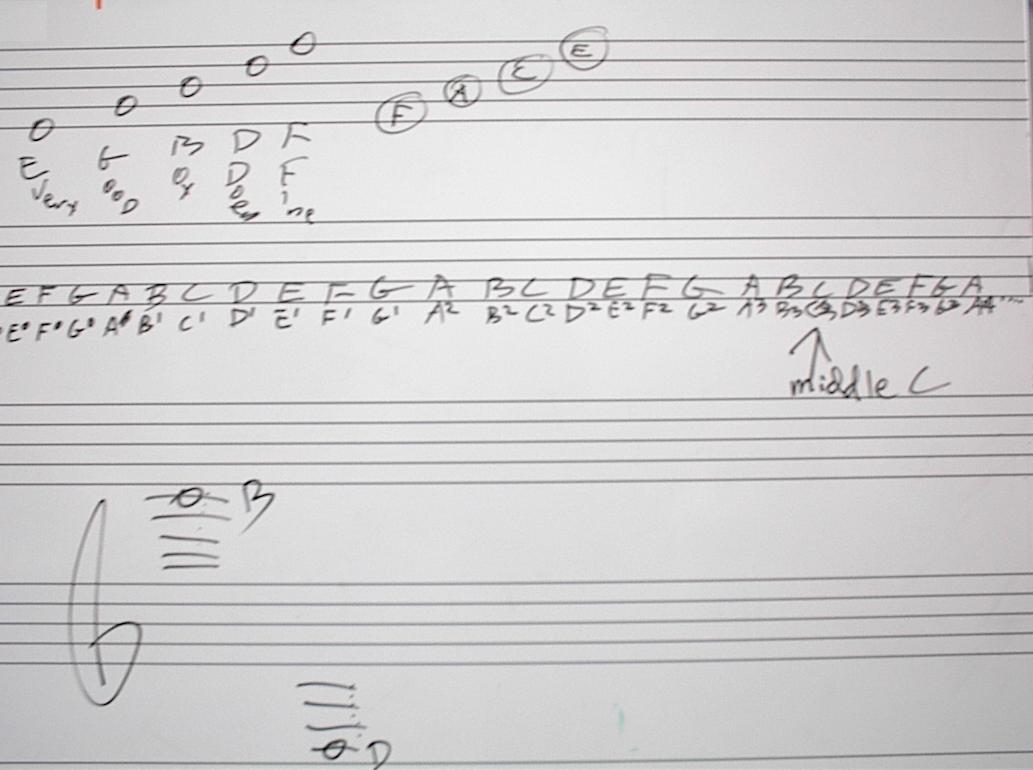 F A C E
E G B D F
D F
very ooD oy oes ine
E F G A B C D E F G A B C D E F G A B C D E F G A
E⁰ F⁰ G⁰ A⁰ B¹ C¹ D¹ E¹ F¹ G¹ A² B² C² D² E² F² G² A³ B3 C3 D3 E3 F3 G3 A4 ....
middle C
B
D